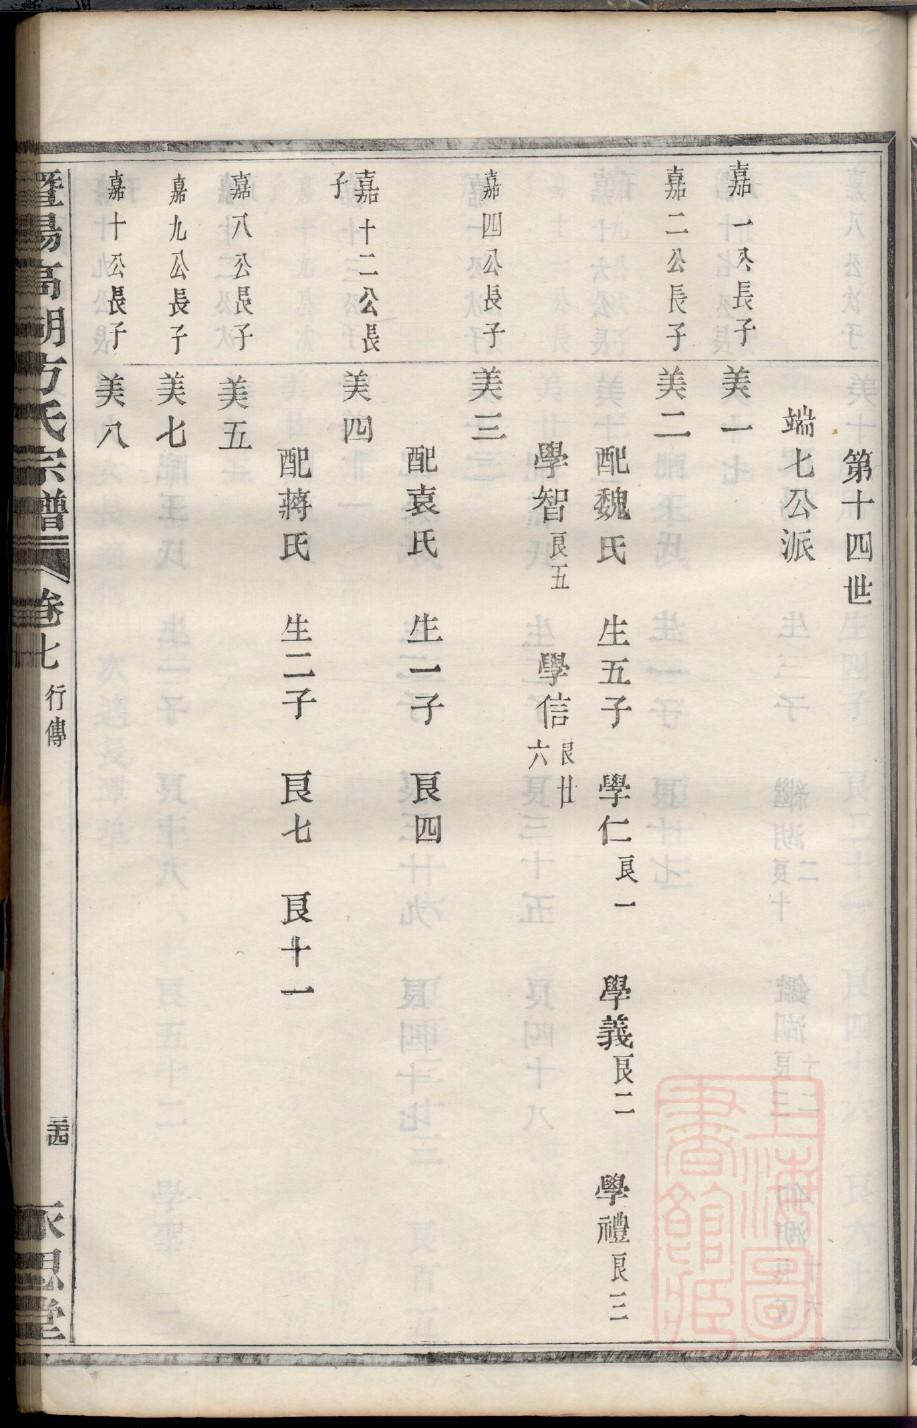 第十四世
端七公派
嘉一公長子
美一
嘉二公長子
美二
配魏氏 生五子 學仁良一 學義良二 學禮良三
學智良五 學信良廿六
嘉四公長子
美三
配袁氏 生一子 良四
嘉十二公長子
美四
配蔣氏 生二子 良七 良十一
嘉八公長子
美五
嘉九公長子
美七
嘉十公長子
美八
暨陽高湖方氏宗譜 卷七 行傳 永思堂
上海圖書館藏